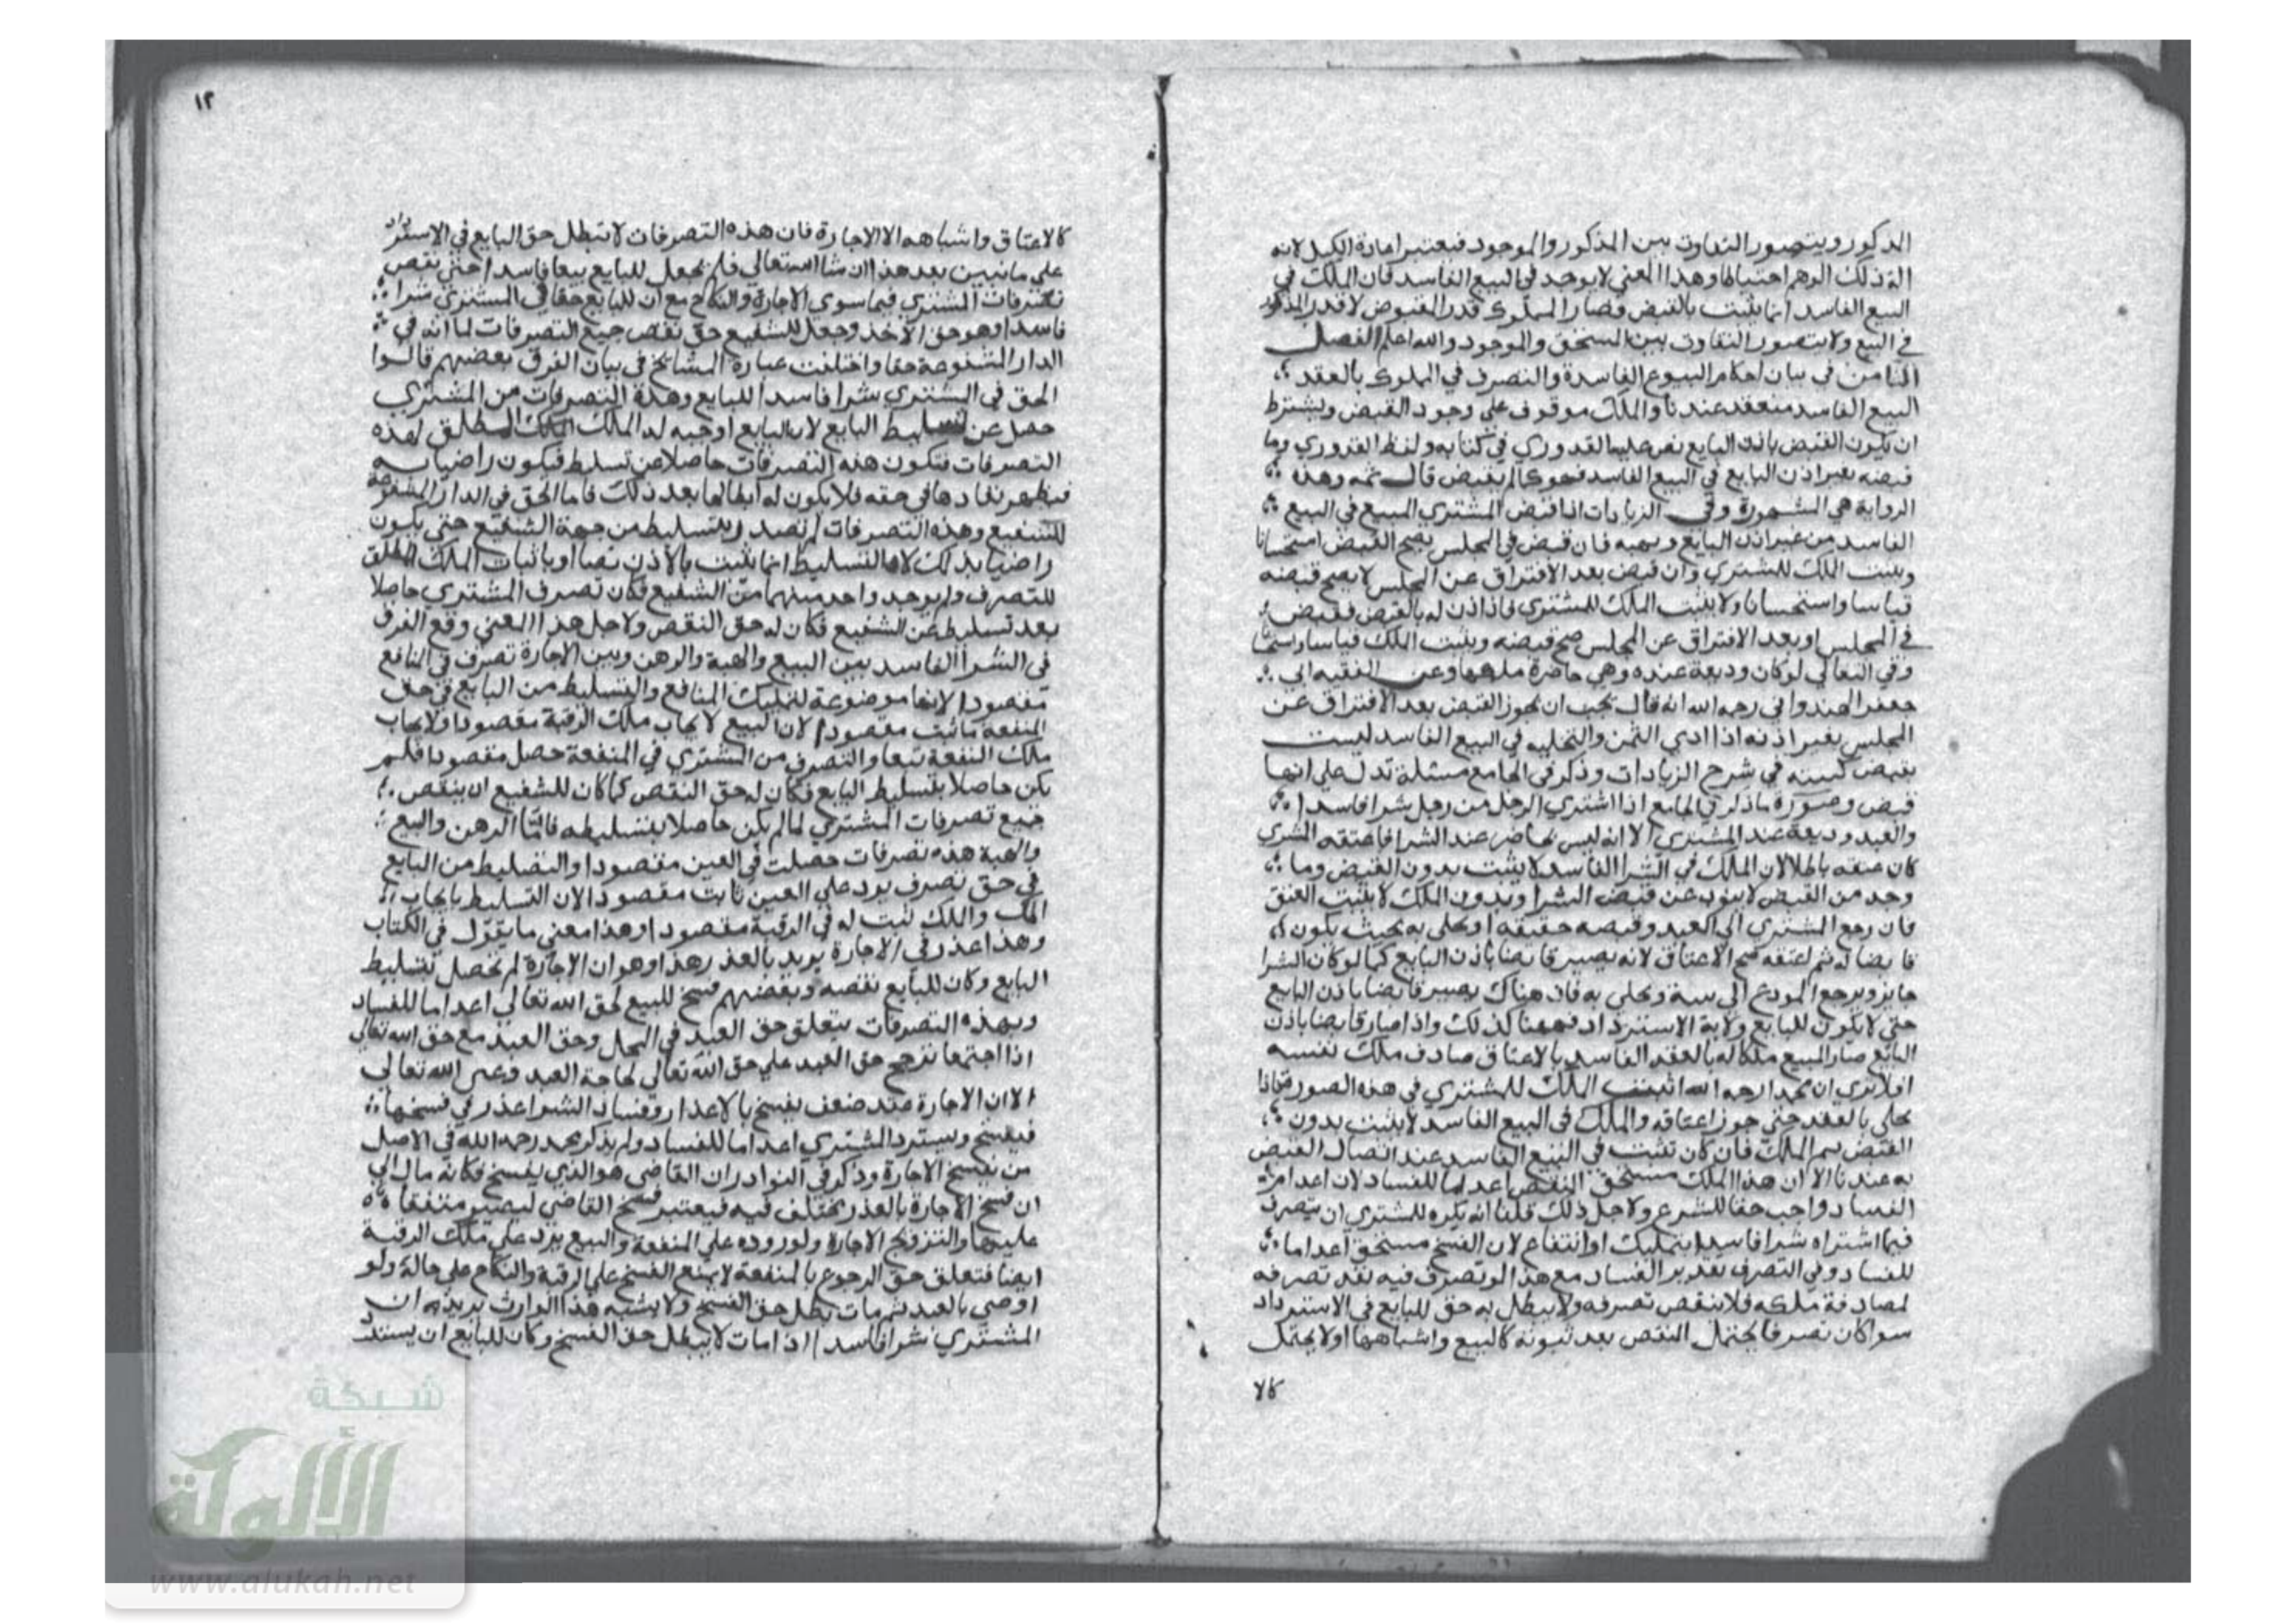 المذكور ويتصور التفاوت بين المذكور والموجود فيعتبر اعادة الكيل لانه
الة ذلك الوهم احتياطا وهذا المعني لا يوجد في البيع الفاسد فان الملك في
البيع الفاسد انما يثبت بالقبض فصار المملوك قدر المقبوض لا قدر المذكور
في البيع ولا يتصور التفاوت بين المستحق والموجود والله اعلم الفصل
الثامن في بيان احكام البيوع الفاسدة والتصرف في المملوك بالعقد
البيع الفاسد منعقد عندنا والملك موقوف علي وجود القبض ويشترط
ان يكون القبض باذن البايع نص عليه القدوري في كتابه ولفظ القدوري وما
قبضه بغير اذن البايع في البيع الفاسد فهو كما لم يقبض قال ثمه وهذه
الرواية هي المشهورة وفي الزيادات اذا قبض المشتري المبيع في البيع
الفاسد من غير اذن البايع ونهيه فان قبض في المجلس يصح القبض استحسانا
ويثبت الملك للمشتري وان قبض بعد الافتراق عن المجلس لا يصح قبضه
قياسا واستحسانا ولا يثبت الملك للمشتري فاذا اذن له بالقبض فقبض
في المجلس او بعد الافتراق عن المجلس صح قبضه ويثبت الملك قياسا واستحسانا
وفي البقالي لو كان وديعة عنده وهي حاضرة ملكها وعن الفقيه ابي
جعفر الهندواني رحمه الله انه قال يجب ان يجوز القبض بعد الافتراق عن
المجلس بغير اذنه اذا ادي الثمن والتخليه في البيع الفاسد ليست
بقبض كبينه في شرح الزيادات وذكر في الجامع مسئلة تدل علي انها
قبض وصورة ما ذكر في الجامع اذا اشتري الرجل من رجل شرا فاسدا
والعبد وديعة عند المشتري الا انه ليس بحاضر عند الشرا فاعتقه المشتري
كان عتقه باطلا لان الملك في الشرا الفاسد لا يثبت بدون القبض وما
وجد من القبض لا ينوب عن قبض الشرا وبدون الملك لا يثبت العتق
فان رجع المشتري الي العبد وقبضه حقيقه او تخلي به بحيث يكون
قابضا له ثم اعتقه صح الاعتاق لانه يصير قابضا باذن البايع كما لو كان الشرا
جايز ويرجع المودع الي بيته وتخلي به فان هناك يصير قابضا باذن البايع
حتي لا يكون للبايع ولاية الاسترداد فههنا كذلك واذا صار قابضا باذن
البايع صار المبيع ملكا له بالعقد الفاسد بالاعتاق صادف ملك نفسه
افلا تري ان محمدا رحمه الله اثبت الملك للمشتري في هذه الصورة فاذا
تخلي بالعقد حتي جوز اعتاقه والملك في البيع الفاسد لا يثبت بدون
القبض ثم الملك فان كان تثبت في البيع الفاسد عند اتصال القبض
به عندنا الا ان هذا الملك مستحق النقض اعداما للفساد لان اعدام
الفساد واجب حقا للشرع ولاجل ذلك قلنا انه يكره للمشتري ان يتصرف
فيما اشتراه شرا فاسدا بتمليك او انتفاع لان الفسخ مستحق اعداما
للفساد وفي التصرف تقدير الفساد مع هذا لو تصرف فيه نفذ تصرفه
لمصادفة ملكه فلا ينقض تصرفه ولا يبطل به حق للبايع في الاسترداد
سوا كان تصرفا يحتمل النقض بعد ثبوته كالبيع واشباهها او لا يحتمل
كالا
١٢
كالاعتاق واشباهه الا الاجارة فان هذه التصرفات لا تبطل حق البايع في الاسترداد
علي ما نبين بعد هذا ان شا الله تعالي فلم يجعل للبايع بيعا فاسدا حتي نقض
تصرفات المشتري فيما سوي الاجارة والنكاح مع ان للبايع حقا في المشتري شرا
فاسدا وهو حق الاخذ وجعل للشفيع حق نقض جميع التصرفات لما انه في
الدار المشفوعة حقا واختلفت عبارة المشايخ في بيان الفرق بعضهم قالوا
الحق في المشتري شرا فاسدا للبايع وهذه التصرفات من المشتري
حصل عن تسليط البايع لان البايع اوجبه له الملك الملك المطلق لهذه
التصرفات فتكون هذه التصرفات حاصلا عن تسليط فيكون راضيا به
فيظهر نفاذها في حقه فلا يكون له ابطالها بعد ذلك فاما الحق في الدار المشفوعة
للشفيع وهذه التصرفات لم تصدر بتسليط من جهة الشفيع حتي يكون
راضيا بذلك لان التسليط انما يثبت بالاذن نصا او باثبات الملك المطلق
للتصرف ولم يوجد واحد منهما من الشفيع فكان تصرف المشتري حاصلا
بعد تسليط عن الشفيع فكان له حق النقض ولاجل هذا المعني وقع الفرق
في الشرا الفاسد بين البيع والهبة والرهن وبين الاجارة تصرف في المنافع
مقصودا لانها موضوعة لتمليك المنافع والتسليط من البايع في حق
المنفعه ماثبت مقصودا لان البيع لايجاب ملك الرقبة مقصودا ولايجاب
ملك المنفعة تبعا والتصرف من المشتري في المنفعة حصل مقصودا فلم
يكن حاصلا بتسليط البايع فكان له حق النقض كما كان للشفيع ان ينقض
جميع تصرفات المشتري لما لم يكن حاصلا بتسليطه فاما الرهن والبيع
والهبة هذه تصرفات حصلت في العين مقصودا والتضليط من البايع
في حق تصرف يرد علي العين ثابت مقصودا لان التسليط بايجاب
الملك والملك ثبت له في الرقبة مقصودا وهذا معني ما يقول في الكتاب
وهذا عذر في الاجارة يريد بالعذر هذا وهو ان الاجارة لم تحصل بتسليط
البايع وكان للبايع نقضه وبعضهم فسخ للبيع لحق الله تعالي اعداما للفساد
وبهذه التصرفات يتعلق حق العبد في المحل وحق العبد مع حق الله تعالي
اذا اجتمعا ترجح حق العبد علي حق الله تعالي لحاجة العبد وغني الله تعالي
الا ان الاجارة عقد ضعف يفسخ بالاعذار وفساد الشرا عذر في فسخها
فيفسخ ويسترد المشتري اعداما للفساد ولم يذكر محمد رحمه الله في الاصل
من يفسخ الاجارة وذكر في النوادر ان القاضي هو الذي يفسخ فكانه مال الي
ان فسخ الاجارة بالعذر مختلف فيه فيعتبر فسخ القاضي ليصير متفقا
عليها والتزويج الاجارة ولوروده علي المنفعة والبيع يرد علي ملك الرقبة
ايضا فتعلق حق الرجوع بالمنفعة لا يمنع الفسخ علي الرقبة والنكاح علي حالة ولو
اوصي بالعبد ثم مات بطل حق الفسخ ولا يشبه هذا الوارث يريد به ان
المشتري شرا فاسدا اذا مات لا يبطل حق الفسخ وكان للبايع ان يسترد
شبكة
الألوكة
www.alukah.net